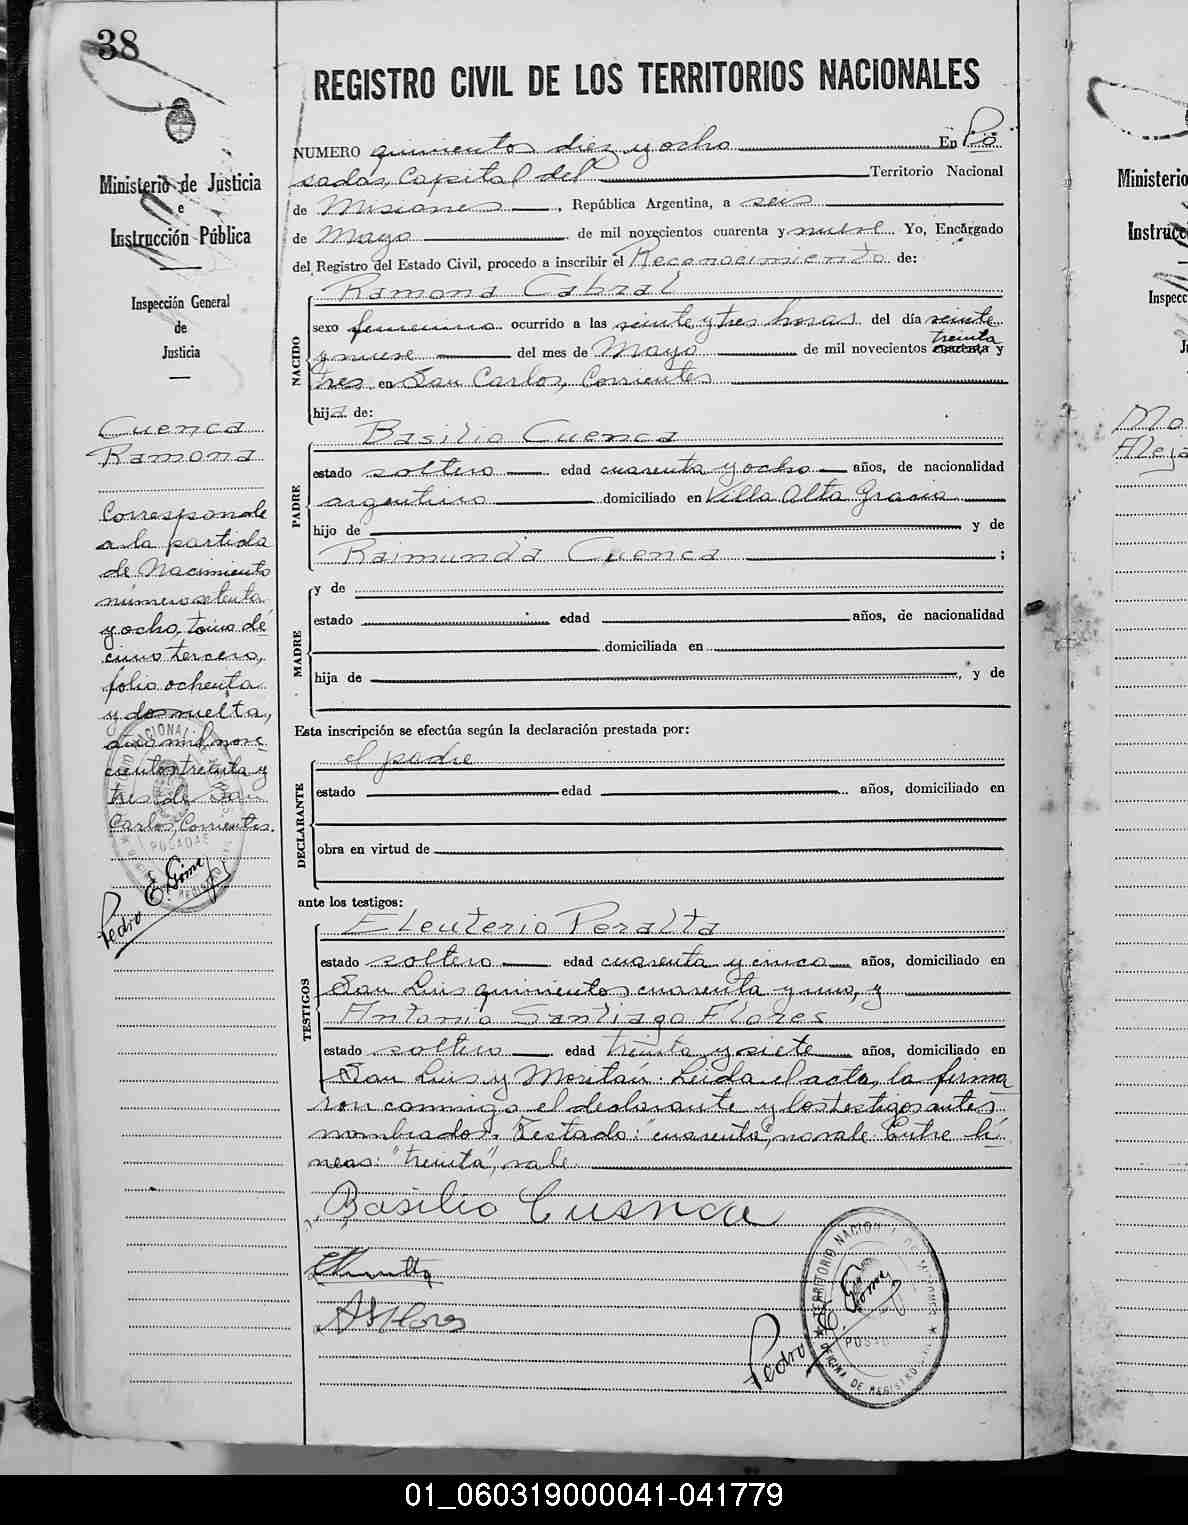 38
Ministerio de Justicia
e
Instrucción Pública
Inspección General
de
Justicia
Cuenca
Ramona
Corresponde
a la partida
de Nacimiento
número setenta
y ocho, tomo dé
cimo tercero,
folio ochenta
y dos vuelta,
año mil nove
cientos treinta y
tres de San
Carlos, Corrientes.
Pedro E. Gime
REGISTRO CIVIL DE LOS TERRITORIOS NACIONALES
NUMERO quinientos diez y ocho En Po
sadas, Capital del Territorio Nacional
de Misiones, República Argentina, a seis
de Mayo de mil novecientos cuarenta y nueve Yo, Encargado
del Registro del Estado Civil, procedo a inscribir el Reconocimiento de:
NACIDO
Ramona Cabral
sexo femenino ocurrido a las veinte y tres horas del día veinte
treinta
y nueve del mes de Mayo de mil novecientos cuarenta y
tres en San Carlos, Corrientes
hija de:
PADRE
Basilio Cuenca
estado soltero edad cuarenta y ocho años, de nacionalidad
argentino domiciliado en Villa Alta Gracia
hijo de y de
Raimunda Cuenca ;
MADRE
y de
estado edad años, de nacionalidad
domiciliada en
hija de , y de
Esta inscripción se efectúa según la declaración prestada por:
DECLARANTE
el padre
estado edad años, domiciliado en
obra en virtud de
ante los testigos:
TESTIGOS
Eleuterio Peralta
estado soltero edad cuarenta y cinco años, domiciliado en
San Luis quinientos cuarenta y uno, y
Antonio Santiago Flores
estado soltero edad treinta y siete años, domiciliado en
San Luis y Moritán. Leida el acta, la firma
ron conmigo el declarante y los testigos antes
nombrados. Testado: "cuarenta", no vale. Entre lí
neas: "treinta", vale.
Basilio Cuenca
ASFlores
Pedro E. Gime
TERRITORIO NACIONAL DE MISIONES
POSADAS
OFICINA DE REGISTRO CIVIL
Ministerio
Instrucc
Inspecc
Ju
Mo
Aleja
01_060319000041-041779